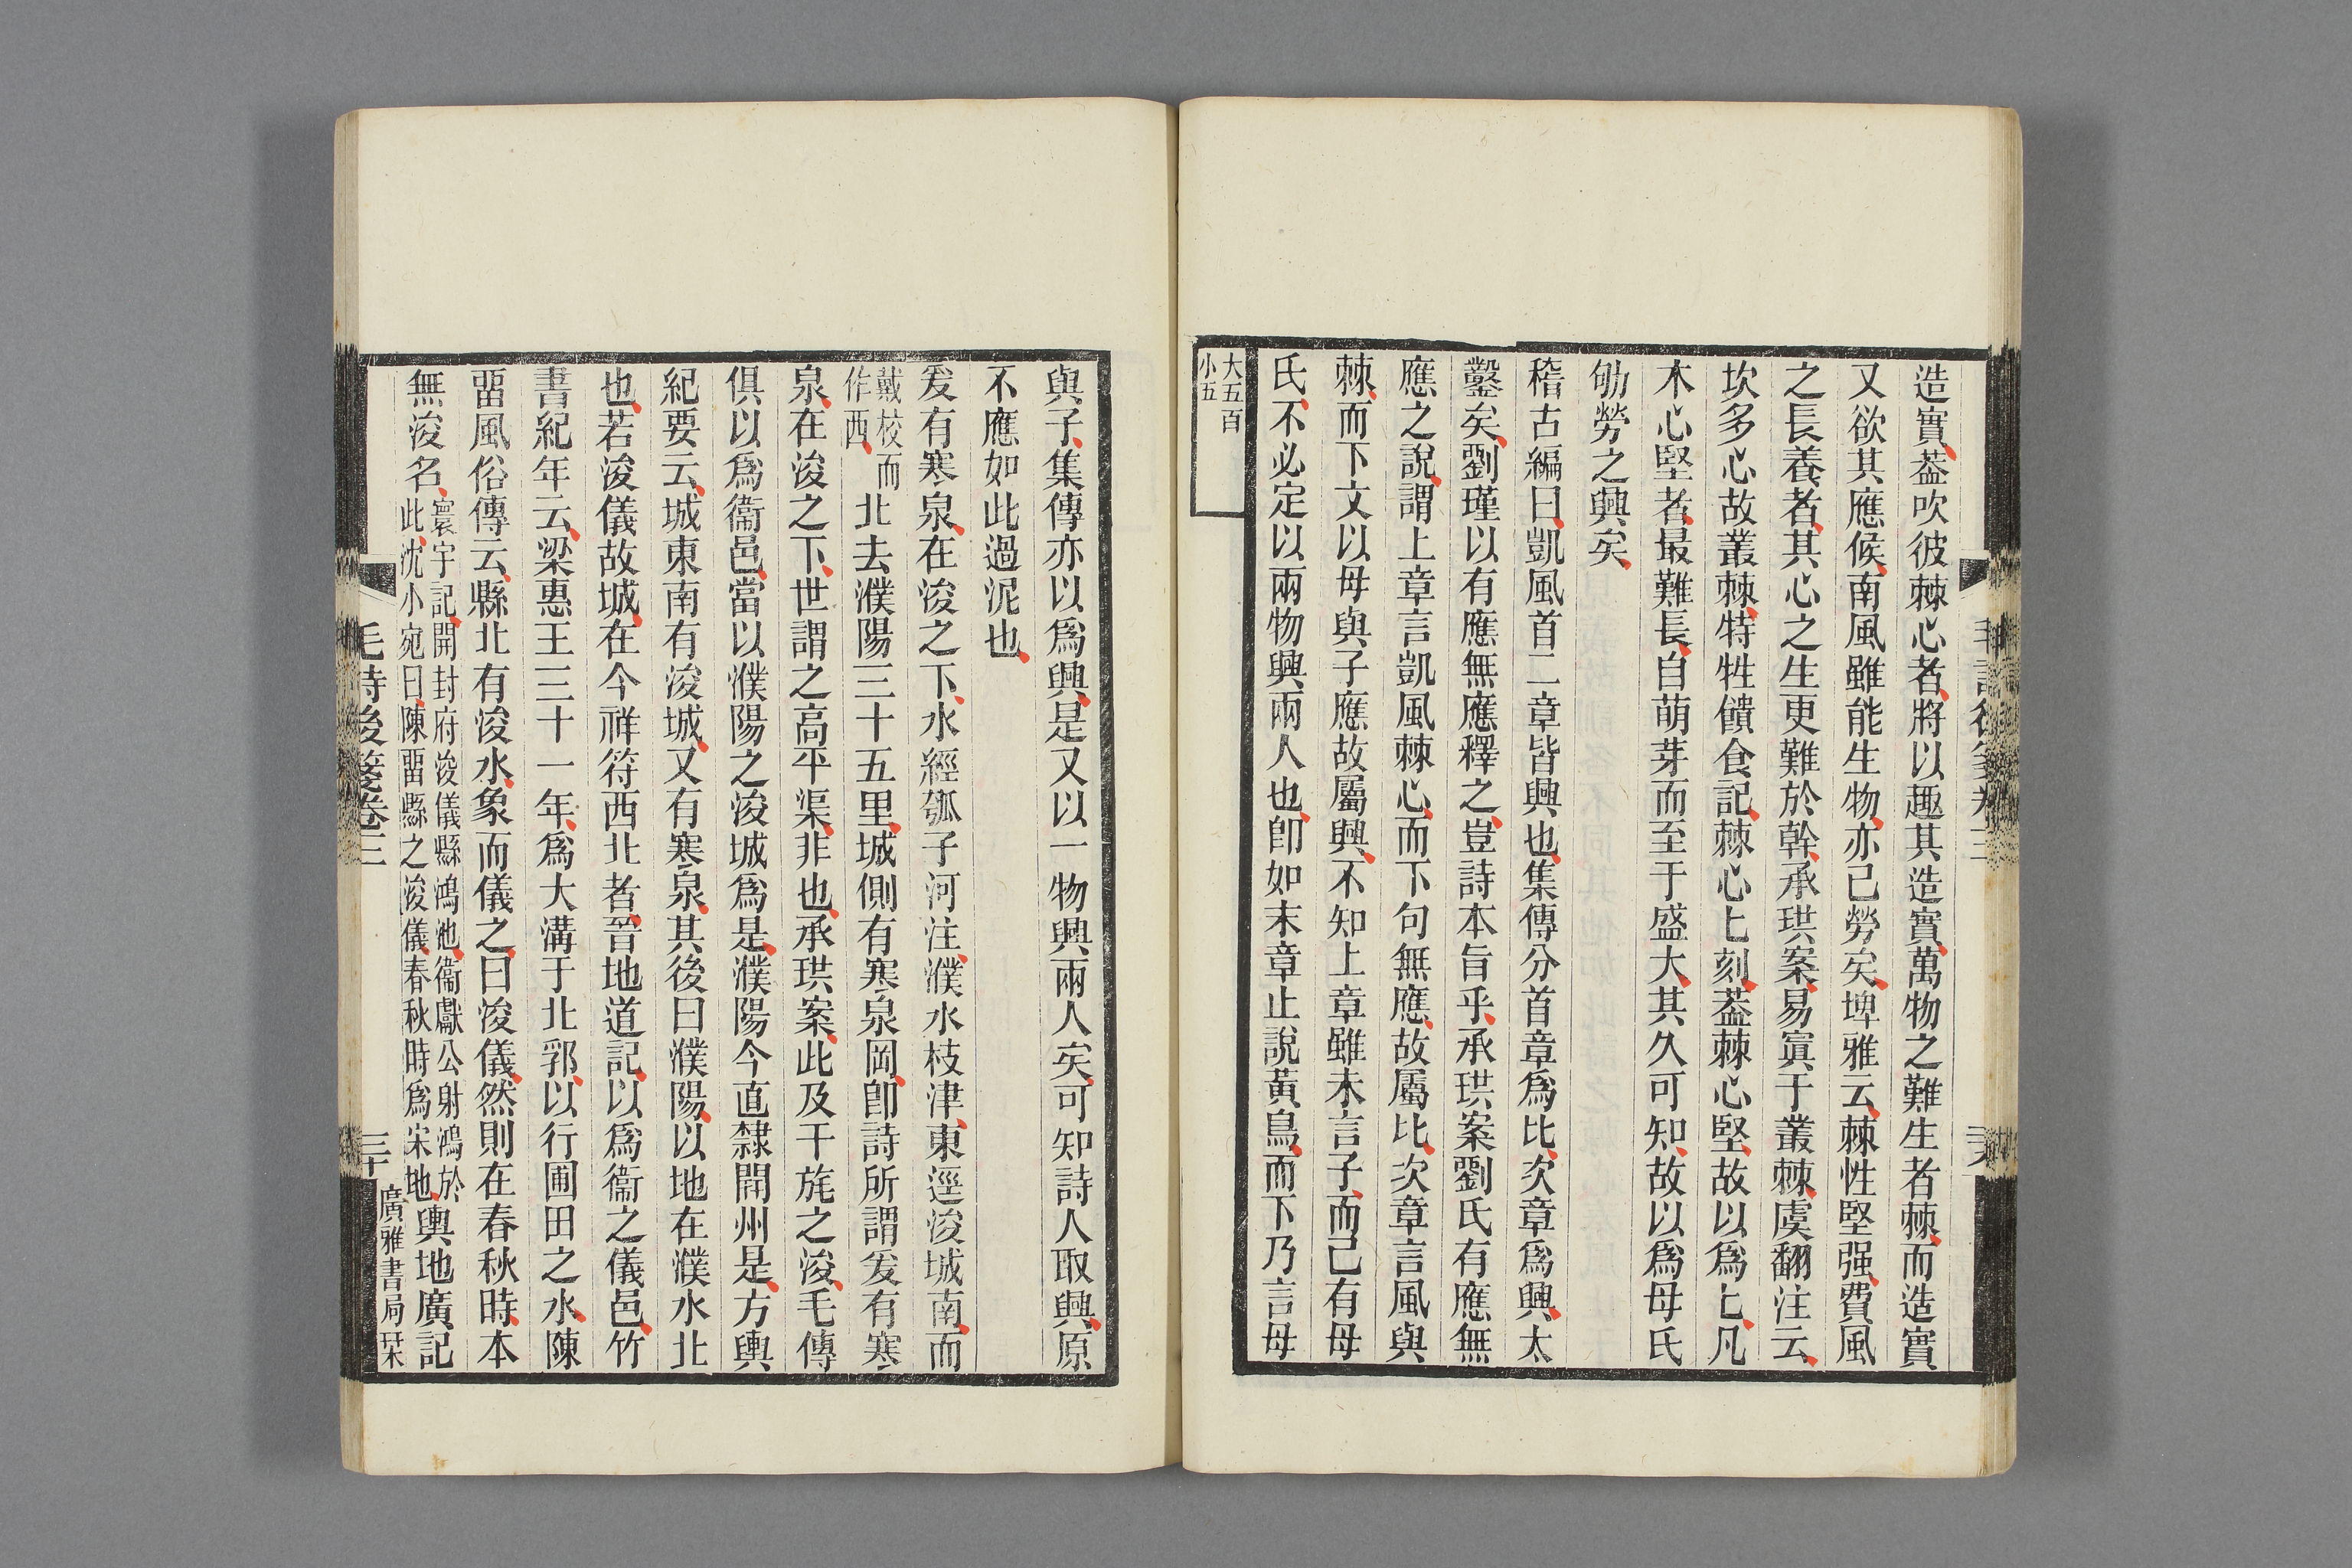 造實葢吹彼棘心者將以趣其造實萬物之難生者棘而造實
又欲其應候南風雖能生物亦已勞矣埤雅云棘性堅强費風
之長養者其心之生更難於幹承珙案易寘于叢棘虞翻注云
坎多心故叢棘特牲饋食記棘心匕刻葢棘心堅故以爲匕凡
木心堅者最難長自萌芽而至于盛大其久可知故以爲母氏
劬勞之興矣
稽古編曰凱風首二章皆興也集傳分首章爲比次章爲興太
鑿矣劉瑾以有應無應釋之豈詩本旨乎承珙案劉氏有應無
應之說謂上章言凱風棘心而下句無應故屬比次章言風與
棘而下文以母與子應故屬興不知上章雖未言子而已有母
氏不必定以兩物興兩人也卽如末章止說黃鳥而下乃言母
大五百
小五
與子集傳亦以爲興是又以一物興兩人矣可知詩人取興原
不應如此過泥也
爰有寒泉在浚之下水經瓠子河注濮水枝津東逕浚城南而
戴校而
作西
北去濮陽三十五里城側有寒泉岡卽詩所謂爰有寒
泉在浚之下世謂之高平渠非也承珙案此及干旄之浚毛傳
俱以爲衞邑當以濮陽之浚城爲是濮陽今直隸開州是方輿
紀要云城東南有浚城又有寒泉其後曰濮陽以地在濮水北
也若浚儀故城在今祥符西北者晉地道記以爲衞之儀邑竹
書紀年云梁惠王三十一年爲大溝于北郛以行圃田之水陳
畱風俗傳云縣北有浚水象而儀之曰浚儀然則在春秋時本
無浚名
寰宇記開封府浚儀縣鴻池衞獻公射鴻於
此沈小宛曰陳畱縣之浚儀春秋時爲宋地
輿地廣記
毛詩後箋卷三
三十
廣雅書局栞